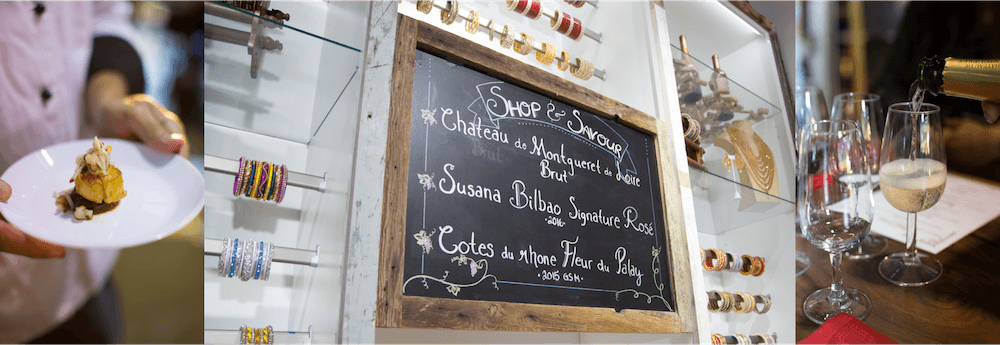 SHOP & SAVOUR
Chateau de Montgueret de Loire
Brut
Susana Bilbao Signature Rosé
·2016·
Cotes du rhone Fleur du Palay
·2015 GSM·